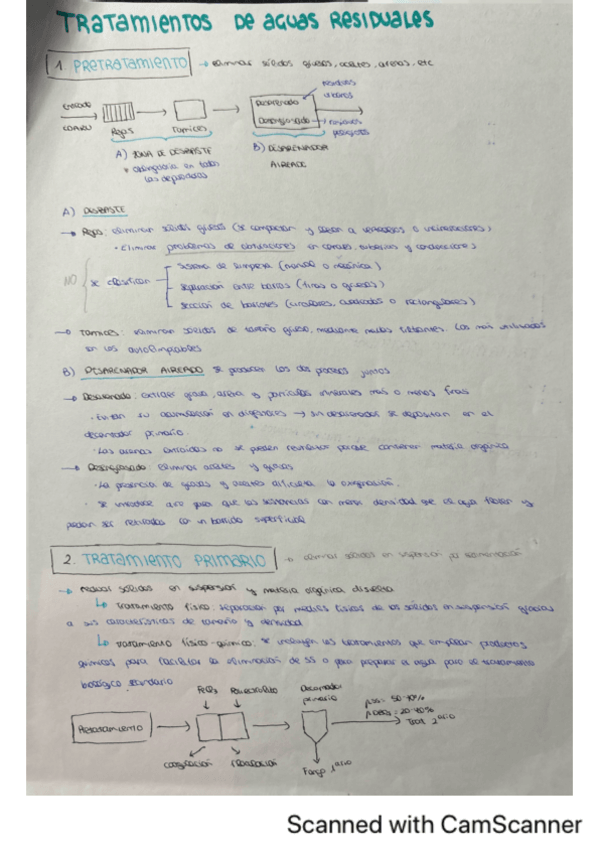 TRATAMIENTOS DE AGUAS RESIDUALES
1. PRETRATAMIENTO → eliminar sólidos gruesos, aceites, arenas, etc
Desarenado
Desengrasado
Rejas Tamices
A) ZONA DE DESBASTE B) DESARENADOR
* obligatoria en todas AIREADO
las depuradoras
A) DESBASTE
→ Rejas: eliminan sólidos gruesos (se compactan y llevan a vertederos o incineradores)
• Eliminar problemas de obturaciones en canales, tuberías y conducciones
NO se clasifican
Sistema de limpieza (manual o mecánica)
separación entre barras (finas o gruesas)
sección de barrotes (circulares, cuadrados o rectangulares)
→ Tamices: eliminan sólidos de tamaño grueso, mediante medios filtrantes. Los más utilizados
son los autolimpiables
B) DESARENADOR AIREADO se producen los dos procesos juntos
→ Desarenado: extraer grava, arena y partículas minerales más o menos finas
• Evitan su acumulación en digestores → sin desarenados se depositan en el
decantador primario.
• Las arenas extraídas no se pueden reutilizar porque contienen materia orgánica
→ Desengrasado: Eliminar aceites y grasas
• La presencia de grasas y aceites dificulta la oxigenación.
• Se introduce aire para que las sustancias con menor densidad que el agua floten y
puedan ser retirados con un barrido superficial
2. TRATAMIENTO PRIMARIO → eliminar sólidos en suspensión por sedimentación
→ reduce sólidos en suspensión y materia orgánica disuelta
↳ tratamiento físico: separación por medios físicos de los sólidos en suspensión gracias
a sus características de tamaño y densidad
↳ tratamiento físico-químico: se incluyen los tratamientos que emplean productos
químicos para facilitar la eliminación de SS o para preparar el agua para el tratamiento
biológico secundario
FeCl₃ Polielectrolito Decantador
primario
Pretratamiento
Coagulación Floculación Fango 1ario
Scanned with CamScanner